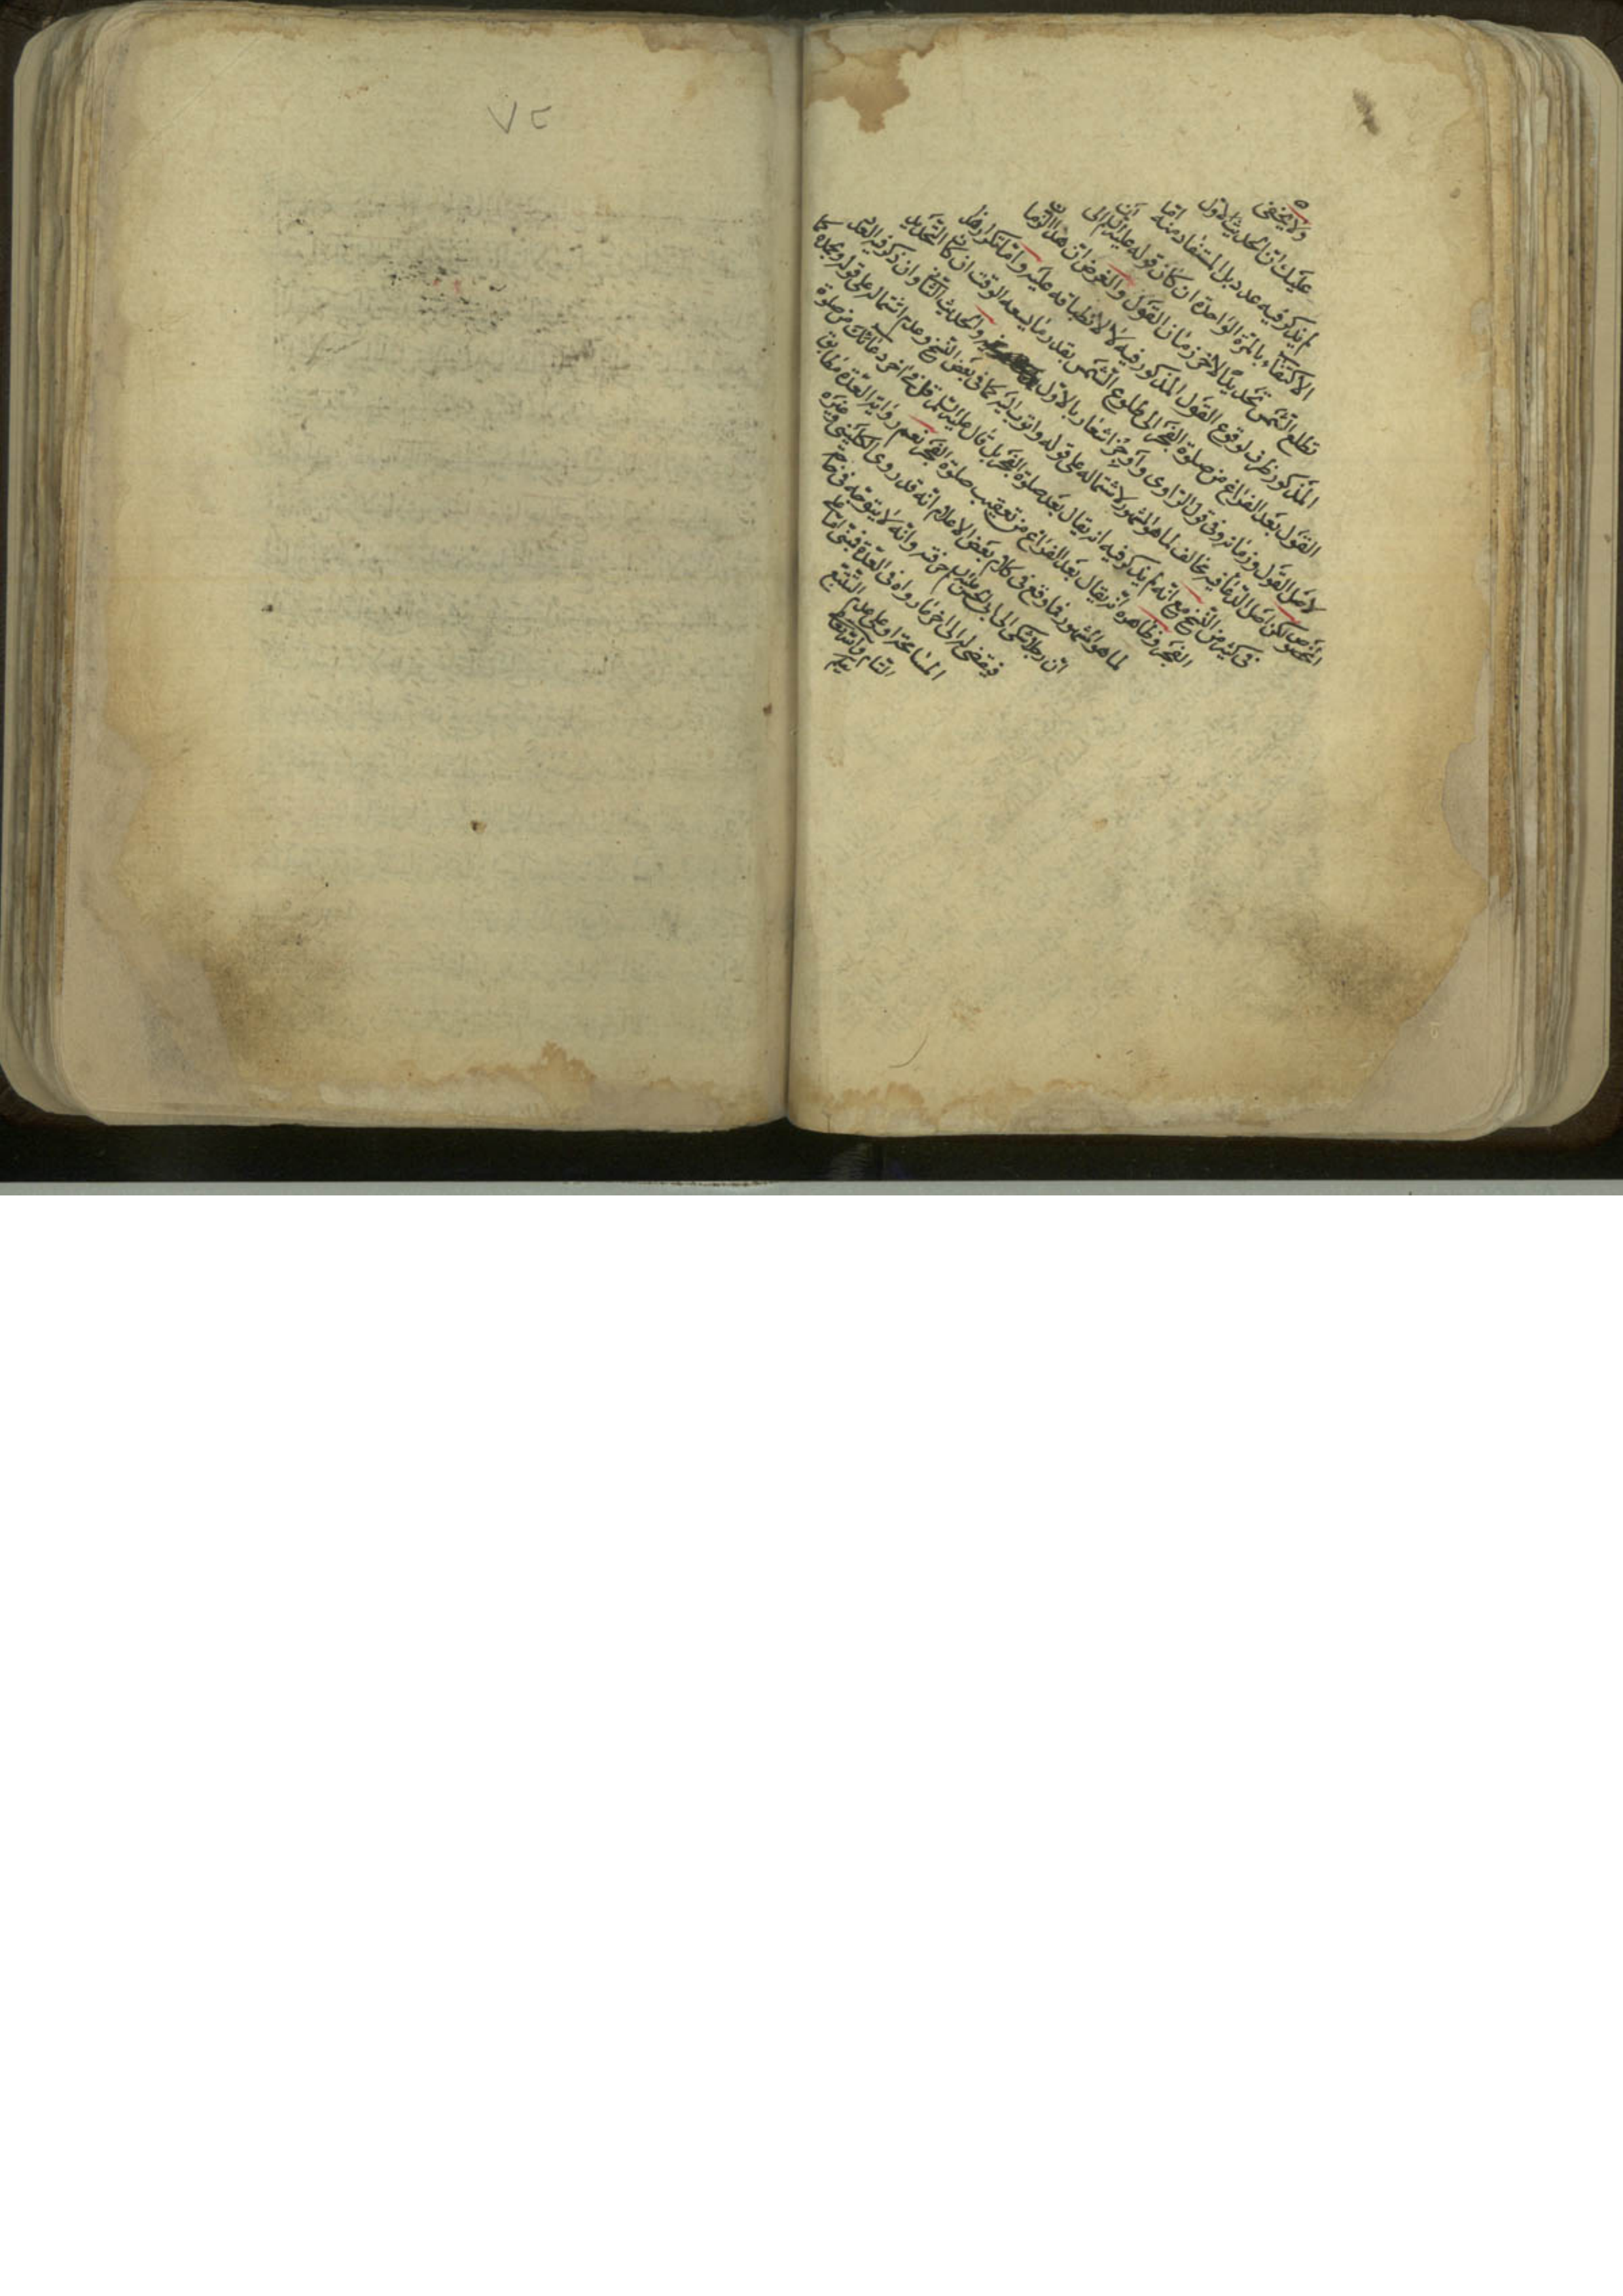 ٧٢
ولا يخفى
عليك ان الحديث الاول
لم يذكر فيه عدد بل المستفاد منه اما
الاكتفاء بالمرة الواحدة ان كان قوله عليه السلم الى ان
تطلع الشمس تحديدا لاخر زمان القول والغرض ان هذا الزمان
المذكور ظرف لوقوع القول المذكور فيه لا لانطباقه عليه واما تكرار هذا
القول بعد الفراغ من صلوة الفجر الى طلوع الشمس بقدر ما يسعه الوقت ان كان التحديد
لاصل القول وزمانه وفى قول الراوى واوجز اشعار بالاول والحديث الثانى وان ذكر فيه العدد
المخصوص لكن اصل الدعاء فيه مخالف لما هو المشهور لاشتماله على قوله واتوب اليه كما فى بعض النسخ وعدم اشتماله على قوله وبحمده كما
فى كثير من النسخ مع انه لم يذكر فيه انه يقال بعد صلوة الفجر بل قال عليه السلم قل فى اخر دعائك من صلوة
الفجر وظاهره انه يقال بعد الفراغ من تعقيب صلوة الفجر نعم رواية العدة مطابق
لما هو المشهور فما وقع فى كلام بعض الاعلام انه قد روى الكلينى وغيره
ان رجلا شكى الى ابى الحسن عليه السلم حرفته وانه لا يتوجه فى حاجة
فيقضى له الى اخر ما رواه فى العدة فمبنى اما على
المسامحة او على عدم التتبع
التام والله تعالى
يعلم